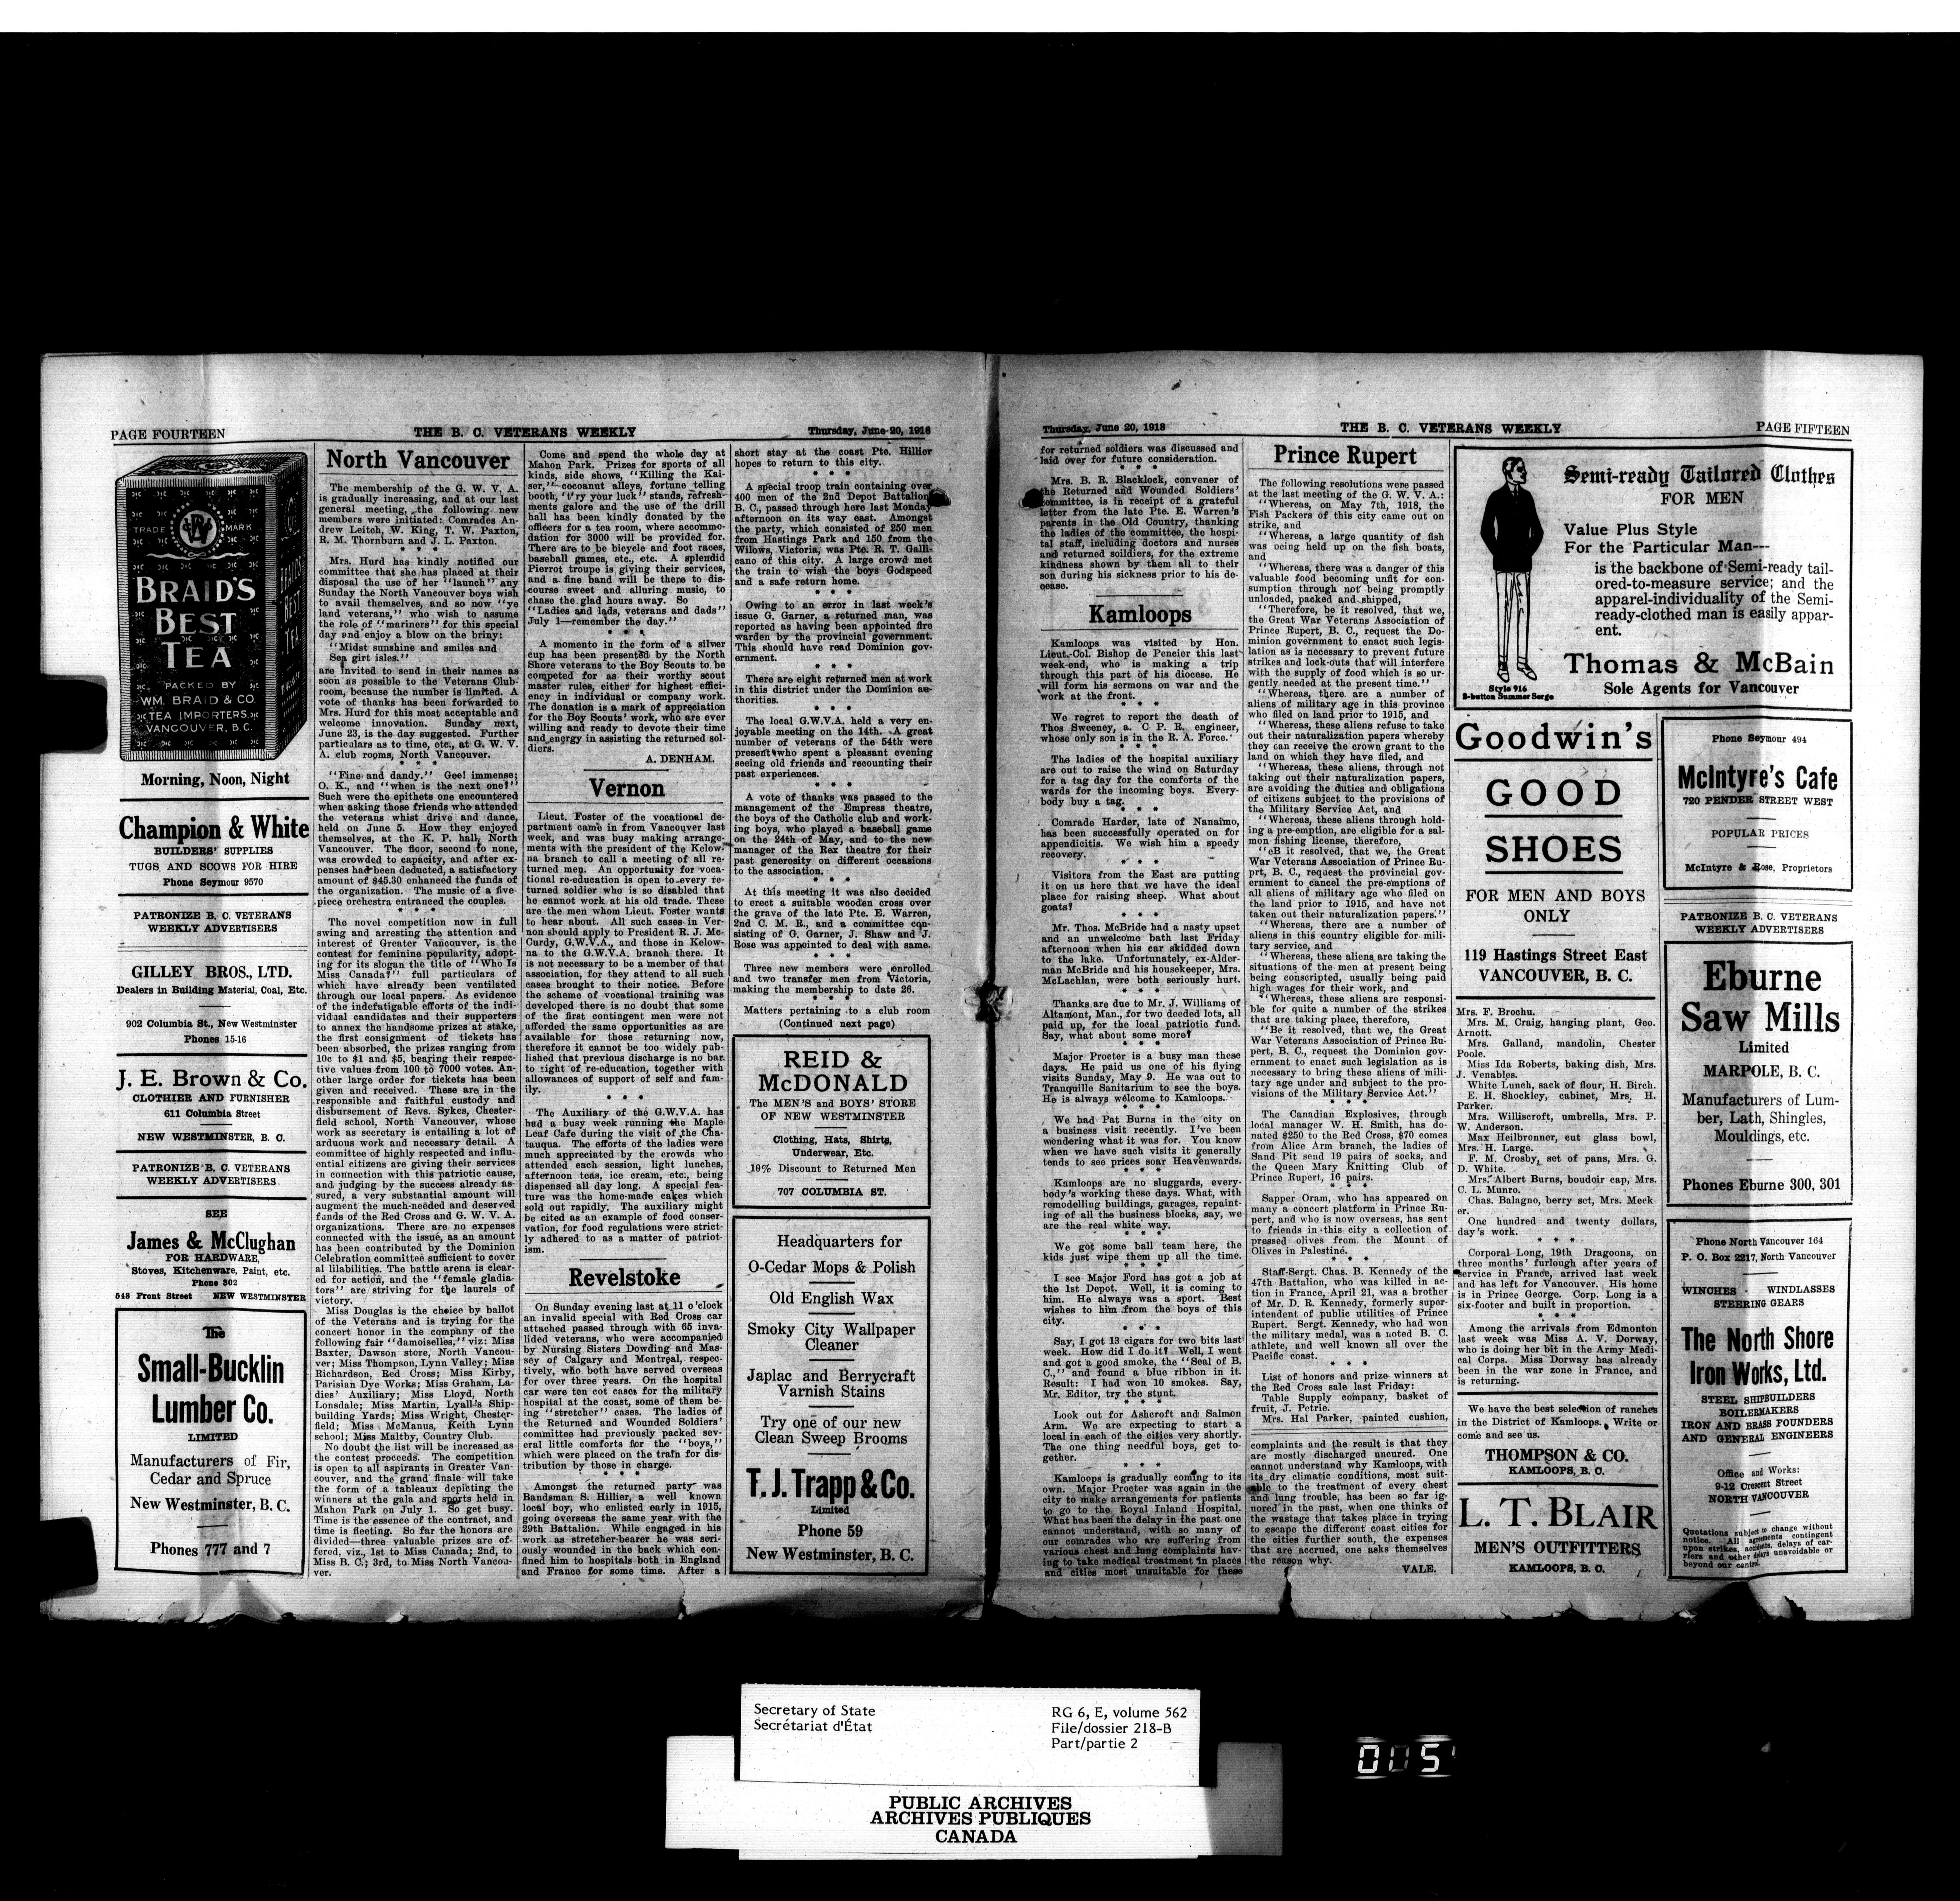 PAGE FOURTEEN
THE B. C. VETERANS WEEKLY
Thursday, June 20, 1918
TRADE MARK
BRAID'S
BEST
TEA
PACKED BY
WM. BRAID & CO.
TEA IMPORTERS,
VANCOUVER, B.C.
Morning, Noon, Night
Champion & White
BUILDERS' SUPPLIES
TUGS AND SCOWS FOR HIRE
Phone Seymour 9570
PATRONIZE B. C. VETERANS
WEEKLY ADVERTISERS
GILLEY BROS., LTD.
Dealers in Building Material, Coal, Etc.
902 Columbia St., New Westminster
Phones 15-16
J. E. Brown & Co.
CLOTHIER AND FURNISHER
611 Columbia Street
NEW WESTMINSTER, B. C.
PATRONIZE B. C. VETERANS
WEEKLY ADVERTISERS
SEE
James & McClughan
FOR HARDWARE,
Stoves, Kitchenware, Paint, etc.
Phone 302
548 Front Street NEW WESTMINSTER
The
Small-Bucklin
Lumber Co.
LIMITED
Manufacturers of Fir,
Cedar and Spruce
New Westminster, B. C.
Phones 777 and 7
North Vancouver
The membership of the G. W. V. A.
is gradually increasing, and at our last
general meeting, the following new
members were initiated: Comrades An-
drew Leitch, W. King, T. W. Paxton,
R. M. Thornburn and J. L. Paxton.
* * *
Mrs. Hurd has kindly notified our
committee that she has placed at their
disposal the use of her "launch" any
Sunday the North Vancouver boys wish
to avail themselves, and so now "ye
land veterans," who wish to assume
the role of "mariners" for this special
day and enjoy a blow on the briny:
"Midst sunshine and smiles and
Sea girt isles."
are invited to send in their names as
soon as possible to the Veterans Club-
room, because the number is limited. A
vote of thanks has been forwarded to
Mrs. Hurd for this most acceptable and
welcome innovation. Sunday next,
June 23, is the day suggested. Further
particulars as to time, etc., at G. W. V.
A. club rooms, North Vancouver.
* * *
"Fine and dandy." Gee! immense;
O. K., and "when is the next one?"
Such were the epithets one encountered
when asking those friends who attended
the veterans whist drive and dance,
held on June 5. How they enjoyed
themselves, at the K. P. hall, North
Vancouver. The floor, second to none,
was crowded to capacity, and after ex-
penses had been deducted, a satisfactory
amount of $45.30 enhanced the funds of
the organization. The music of a five-
piece orchestra entranced the couples.
* * *
The novel competition now in full
swing and arresting the attention and
interest of Greater Vancouver, is the
contest for feminine popularity, adopt-
ing for its slogan the title of "Who Is
Miss Canada?" full particulars of
which have already been ventilated
through our local papers. As evidence
of the indefatigable efforts of the indi-
vidual candidates and their supporters
to annex the handsome prizes at stake,
the first consignment of tickets has
been absorbed, the prizes ranging from
10c to $1 and $5, bearing their respec-
tive values from 100 to 7000 votes. An-
other large order for tickets has been
given and received. These are in the
responsible and faithful custody and
disbursement of Revs. Sykes, Chester-
field school, North Vancouver, whose
work as secretary is entailing a lot of
arduous work and necessary detail. A
committee of highly respected and influ-
ential citizens are giving their services
in connection with this patriotic cause,
and judging by the success already as-
sured, a very substantial amount will
augment the much-needed and deserved
funds of the Red Cross and G. W. V. A.
organizations. There are no expenses
connected with the issue, as an amount
has been contributed by the Dominion
Celebration committee sufficient to cover
al lilabilities. The battle arena is clear-
ed for action, and the "female gladia-
tors" are striving for the laurels of
victory.
Miss Douglas is the choice by ballot
of the Veterans and is trying for the
concert honor in the company of the
following fair "damoiselles," viz: Miss
Baxter, Dawson store, North Vancou-
ver; Miss Thompson, Lynn Valley; Miss
Richardson, Red Cross; Miss Kirby,
Parisian Dye Works; Miss Graham, La-
dies' Auxiliary; Miss Lloyd, North
Lonsdale; Miss Martin, Lyall's Ship-
building Yards; Miss Wright, Chester-
field; Miss McManus, Keith Lynn
school; Miss Maltby, Country Club.
No doubt the list will be increased as
the contest proceeds. The competition
is open to all aspirants in Greater Van-
couver, and the grand finale will take
the form of a tableaux depicting the
winners at the gala and sports held in
Mahon Park on July 1. So get busy.
Time is the essence of the contract, and
time is fleeting. So far the honors are
divided—three valuable prizes are of-
fered, viz., 1st to Miss Canada; 2nd, to
Miss B. C.; 3rd, to Miss North Vancou-
ver.
Come and spend the whole day at
Mahon Park. Prizes for sports of all
kinds, side shows, "Killing the Kai-
ser," cocoanut alleys, fortune telling
booth, 't'ry your luck" stands, refresh-
ments galore and the use of the drill
hall has been kindly donated by the
officers for a tea room, where accommo-
dation for 3000 will be provided for.
There are to be bicycle and foot races,
baseball games, etc., etc. A splendid
Pierrot troupe is giving their services,
and a fine band will be there to dis-
course sweet and alluring music, to
chase the glad hours away. So
"Ladies and lads, veterans and dads"
July 1—remember the day."
* * *
A momento in the form of a silver
cup has been presented by the North
Shore veterans to the Boy Scouts to be
competed for as their worthy scout
master rules, either for highest effici-
ency in individual or company work.
The donation is a mark of appreciation
for the Boy Scouts' work, who are ever
willing and ready to devote their time
and energy in assisting the returned sol-
diers.
A. DENHAM.
Vernon
Lieut. Foster of the vocational de-
partment came in from Vancouver last
week, and was busy making arrange-
ments with the president of the Kelow-
na branch to call a meeting of all re-
turned men. An opportunity for voca-
tional re-education is open to every re-
turned soldier who is so disabled that
he cannot work at his old trade. These
are the men whom Lieut. Foster wants
to hear about. All such cases in Ver-
non should apply to President R. J. Mc-
Curdy, G.W.V.A., and those in Kelow-
na to the G.W.V.A. branch there. It
is not necessary to be a member of that
association, for they attend to all such
cases brought to their notice. Before
the scheme of vocational training was
developed there is no doubt that some
of the first contingent men were not
afforded the same opportunities as are
available for those returning now,
therefore it cannot be too widely pub-
lished that previous discharge is no bar
to right of re-education, together with
allowances of support of self and fam-
ily.
* * *
The Auxiliary of the G.W.V.A. has
had a busy week running the Maple
Leaf Cafe during the visit of the Cha-
tauqua. The efforts of the ladies were
much appreciated by the crowds who
attended each session, light lunches,
afternoon teas, ice cream, etc., being
dispensed all day long. A special fea-
ture was the home-made cakes which
sold out rapidly. The auxiliary might
be cited as an example of food conser-
vation, for food regulations were strict-
ly adhered to as a matter of patriot-
ism.
Revelstoke
On Sunday evening last at 11 o'clock
an invalid special with Red Cross car
attached passed through with 65 inva-
lided veterans, who were accompanied
by Nursing Sisters Dowding and Mas-
sey of Calgary and Montreal, respec-
tively, who both have served overseas
for over three years. On the hospital
car were ten cot cases for the military
hospital at the coast, some of them be-
ing "stretcher" cases. The ladies of
the Returned and Wounded Soldiers'
committee had previously packed sev-
eral little comforts for the "boys,"
which were placed on the train for dis-
tribution by those in charge.
* * *
Amongst the returned party was
Bandsman S. Hillier, a well known
local boy, who enlisted early in 1915,
going overseas the same year with the
29th Battalion. While engaged in his
work as stretcher-bearer he was seri-
ously wounded in the back which con-
fined him to hospitals both in England
and France for some time. After a
short stay at the coast Pte. Hillier
hopes to return to this city.
* * *
A special troop train containing over
400 men of the 2nd Depot Battalion
B. C., passed through here last Monday
afternoon on its way east. Amongst
the party, which consisted of 250 men
from Hastings Park and 150 from the
Wilows, Victoria, was Pte. R. T. Galli-
cano of this city. A large crowd met
the train to wish the boys Godspeed
and a safe return home.
* * *
Owing to an error in last week's
issue G. Garner, a returned man, was
reported as having been appointed fire
warden by the provincial government.
This should have read Dominion gov-
ernment.
* * *
There are eight returned men at work
in this district under the Dominion au-
thorities.
* * *
The local G.W.V.A. held a very en-
joyable meeting on the 14th. A great
number of veterans of the 54th were
present who spent a pleasant evening
seeing old friends and recounting their
past experiences.
* * *
A vote of thanks was passed to the
management of the Empress theatre,
the boys of the Catholic club and work-
ing boys, who played a baseball game
on the 24th of May, and to the new
manager of the Rex theatre for their
past generosity on different occasions
to the association.
* * *
At this meeting it was also decided
to erect a suitable wooden cross over
the grave of the late Pte. E. Warren,
2nd C. M. R., and a committee con-
sisting of G. Garner, J. Shaw and J.
Rose was appointed to deal with same.
* * *
Three new members were enrolled
and two transfer men from Victoria,
making the membership to date 26.
* * *
Matters pertaining to a club room
(Continued next page)
REID &
McDONALD
The MEN'S and BOYS' STORE
OF NEW WESTMINSTER
Clothing, Hats, Shirts,
Underwear, Etc.
10% Discount to Returned Men
707 COLUMBIA ST.
Headquarters for
O-Cedar Mops & Polish
Old English Wax
Smoky City Wallpaper
Cleaner
Japlac and Berrycraft
Varnish Stains
Try one of our new
Clean Sweep Brooms
T. J. Trapp & Co.
Limited
Phone 59
New Westminster, B. C.
Thursday, June 20, 1918
THE B. C. VETERANS WEEKLY
PAGE FIFTEEN
for returned soldiers was discussed and
laid over for future consideration.
* * *
Mrs. B. R. Blacklock, convener of
the Returned and Wounded Soldiers'
committee, is in receipt of a grateful
letter from the late Pte. E. Warren's
parents in the Old Country, thanking
the ladies of the committee, the hospi-
tal staff, including doctors and nurses
and returned soildiers, for the extreme
kindness shown by them all to their
son during his sickness prior to his de-
cease.
Kamloops
Kamloops was visited by Hon.
Lieut.-Col. Bishop de Pencier this last
week-end, who is making a trip
through this part of his diocese. He
will form his sermons on war and the
work at the front.
* * *
We regret to report the death of
Thos Sweeney, a. C. P. R. engineer,
whose only son is in the R. A. Force.
* * *
The ladies of the hospital auxiliary
are out to raise the wind on Saturday
for a tag day for the comforts of the
wards for the incoming boys. Every-
body buy a tag.
* * *
Comrade Harder, late of Nanaimo,
has been successfully operated on for
appendicitis. We wish him a speedy
recovery.
* * *
Visitors from the East are putting
it on us here that we have the ideal
place for raising sheep. What about
goats?
* * *
Mr. Thos. McBride had a nasty upset
and an unwelcome bath last Friday
afternoon when his car skidded down
to the lake. Unfortunately, ex-Alder-
man McBride and his housekeeper, Mrs.
McLachlan, were both seriously hurt.
* * *
Thanks are due to Mr. J. Williams of
Altamont, Man., for two deeded lots, all
paid up, for the local patriotic fund.
Say, what about some more?
* * *
Major Procter is a busy man these
days. He paid us one of his flying
visits Sunday, May 9. He was out to
Tranquille Sanitarium to see the boys.
He is always welcome to Kamloops.
* * *
We had Pat Burns in the city on
a business visit recently. I've been
wondering what it was for. You know
when we have such visits it generally
tends to see prices soar Heavenwards.
* * *
Kamloops are no sluggards, every-
body's working these days. What, with
remodelling buildings, garages, repaint-
ing of all the business blocks, say, we
are the real white way.
* * *
We got some ball team here, the
kids just wipe them up all the time.
* * *
I see Major Ford has got a job at
the 1st Depot. Well, it is coming to
him. He always was a sport. Best
wishes to him from the boys of this
city.
* * *
Say, I got 13 cigars for two bits last
week. How did I do it? Well, I went
and got a good smoke, the "Seal of B.
C.," and found a blue ribbon in it.
Result: I had won 10 smokes. Say,
Mr. Editor, try the stunt.
* * *
Look out for Ashcroft and Salmon
Arm. We are expecting to start a
local in each of the cities very shortly.
The one thing needful boys, get to-
gether.
* * *
Kamloops is gradually coming to its
own. Major Procter was again in the
city to make arrangements for patients
to go to the Royal Inland Hospital.
What has been the delay in the past one
cannot understand, with so many of
our comrades who are suffering from
various chest and lung complaints hav-
ing to take medical treatment in places
and cities most unsuitable for these
Prince Rupert
The following resolutions were passed
at the last meeting of the G. W. V. A.:
"Whereas, on May 7th, 1918, the
Fish Packers of this city came out on
strike, and
"Whereas, a large quantity of fish
was being held up on the fish boats,
and
"Whereas, there was a danger of this
valuable food becoming unfit for con-
sumption through not being promptly
unloaded, packed and shipped,
"Therefore, be it resolved, that we,
the Great War Veterans Association of
Prince Rupert, B. C., request the Do-
minion government to enact such legis-
lation as is necessary to prevent future
strikes and lock-outs that will interfere
with the supply of food which is so ur-
gently needed at the present time."
"Whereas, there are a number of
aliens of military age in this province
who filed on land prior to 1915, and
"Whereas, these aliens refuse to take
out their naturalization papers whereby
they can receive the crown grant to the
land on which they have filed, and
"Whereas, these aliens, through not
taking out their naturalization papers,
are avoiding the duties and obligations
of citizens subject to the provisions of
the Military Service Act, and
"Whereas, these aliens through hold-
ing a pre-emption, are eligible for a sal-
mon fishing license, therefore,
"eB it resolved, that we, the Great
War Veterans Association of Prince Ru-
prt, B. C., request the provincial gov-
ernment to cancel the pre-emptions of
all aliens of military age who filed on
the land prior to 1915, and have not
taken out their naturalization papers."
"Whereas, there are a number of
aliens in this country eligible for mili-
tary service, and
"Whereas, these aliens are taking the
situations of the men at present being
being conscripted, usually being paid
high wages for their work, and
"Whereas, these aliens are responsi-
ble for quite a number of the strikes
that are taking place, therefore,
"Be it resolved, that we, the Great
War Veterans Association of Prince Ru-
pert, B. C., request the Dominion gov-
ernment to enact such legislation as is
necessary to bring these aliens of mili-
tary age under and subject to the pro-
visions of the Military Service Act."
* * *
The Canadian Explosives, through
local manager W. H. Smith, has do-
nated $250 to the Red Cross, $70 comes
from Alice Arm branch, the ladies of
Sand Pit send 19 pairs of socks, and
the Queen Mary Knitting Club of
Prince Rupert, 16 pairs.
* * *
Sapper Oram, who has appeared on
many a concert platform in Prince Ru-
pert, and who is now overseas, has sent
to friends in this city a collection of
pressed olives from the Mount of
Olives in Palestine.
* * *
Staff-Sergt. Chas. B. Kennedy of the
47th Battalion, who was killed in ac-
tion in France, April 21, was a brother
of Mr. D. R. Kennedy, formerly super-
intendent of public utilities of Prince
Rupert. Sergt. Kennedy, who had won
the military medal, was a noted B. C.
athlete, and well known all over the
Pacific coast.
* * *
List of honors and prize winners at
the Red Cross sale last Friday:
Table Supply company, basket of
fruit, J. Petrie.
Mrs. Hal Parker, painted cushion,
complaints and the result is that they
are mostly discharged uncured. One
cannot understand why Kamloops, with
its dry climatic conditions, most suit-
able to the treatment of every chest
and lung trouble, has been so far ig-
nored in the past, when one thinks of
the wastage that takes place in trying
to escape the different coast cities for
the cities further south, the expenses
that are accrued, one asks themselves
the reason why.
VALE.
Semi-ready Tailored Clothes
FOR MEN
Value Plus Style
For the Particular Man---
is the backbone of Semi-ready tail-
ored-to-measure service; and the
apparel-individuality of the Semi-
ready-clothed man is easily appar-
ent.
Thomas & McBain
Sole Agents for Vancouver
Style 916
2-button Summer Serge
Goodwin's
GOOD
SHOES
FOR MEN AND BOYS
ONLY
119 Hastings Street East
VANCOUVER, B. C.
Mrs. F. Brochu.
Mrs. M. Craig, hanging plant, Geo.
Arnott.
Mrs. Galland, mandolin, Chester
Poole.
Miss Ida Roberts, baking dish, Mrs.
J. Venables.
White Lunch, sack of flour, H. Birch.
E. H. Shockley, cabinet, Mrs. H.
Parker.
Mrs. Williscroft, umbrella, Mrs. P.
W. Anderson.
Max Heilbronner, cut glass bowl,
Mrs. H. Large.
F. M. Crosby, set of pans, Mrs. G.
D. White.
Mrs. Albert Burns, boudoir cap, Mrs.
C. L. Munro.
Chas. Balagno, berry set, Mrs. Meek-
er.
One hundred and twenty dollars,
day's work.
* * *
Corporal Long, 19th Dragoons, on
three months' furlough after years of
service in France, arrived last week
and has left for Vancouver. His home
is in Prince George. Corp. Long is a
six-footer and built in proportion.
* * *
Among the arrivals from Edmonton
last week was Miss A. V. Dorway,
who is doing her bit in the Army Medi-
cal Corps. Miss Dorway has already
been in the war zone in France, and
is returning.
We have the best selection of ranches
in the District of Kamloops. Write or
come and see us.
THOMPSON & CO.
KAMLOOPS, B. C.
L. T. BLAIR
MEN'S OUTFITTERS
KAMLOOPS, B. C.
Phone Seymour 494
McIntyre's Cafe
720 PENDER STREET WEST
POPULAR PRICES
McIntyre & Rose, Proprietors
PATRONIZE B. C. VETERANS
WEEKLY ADVERTISERS
Eburne
Saw Mills
Limited
MARPOLE, B. C.
Manufacturers of Lum-
ber, Lath, Shingles,
Mouldings, etc.
Phones Eburne 300, 301
Phone North Vancouver 164
P. O. Box 2217, North Vancouver
WINCHES - WINDLASSES
STEERING GEARS
The North Shore
Iron Works, Ltd.
STEEL SHIPBUILDERS
BOILERMAKERS
IRON AND BRASS FOUNDERS
AND GENERAL ENGINEERS
Office and Works:
9-12 Crescent Street
NORTH VANCOUVER
Quotations subject to change without
notice. All agreements contingent
upon strikes, accidents, delays of car-
riers and other delays unavoidable or
beyond our control.
Secretary of State
Secrétariat d'État
RG 6, E, volume 562
File/dossier 218-B
Part/partie 2
PUBLIC ARCHIVES
ARCHIVES PUBLIQUES
CANADA